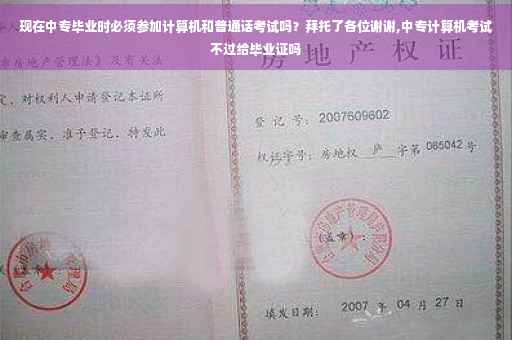 现在中专毕业时必须参加计算机和普通话考试吗？拜托了各位谢谢,中专计算机考试
不过给毕业证吗
房地产管理法》及有关法
定，对权利人申请登记本证所
审查属实，准予登记，特发此
房地产权证
登记号：2007609602
权证字号：房地权 庐 字第 065042 号
(盖章)：
填发日期： 2007 年 04 月 27 日